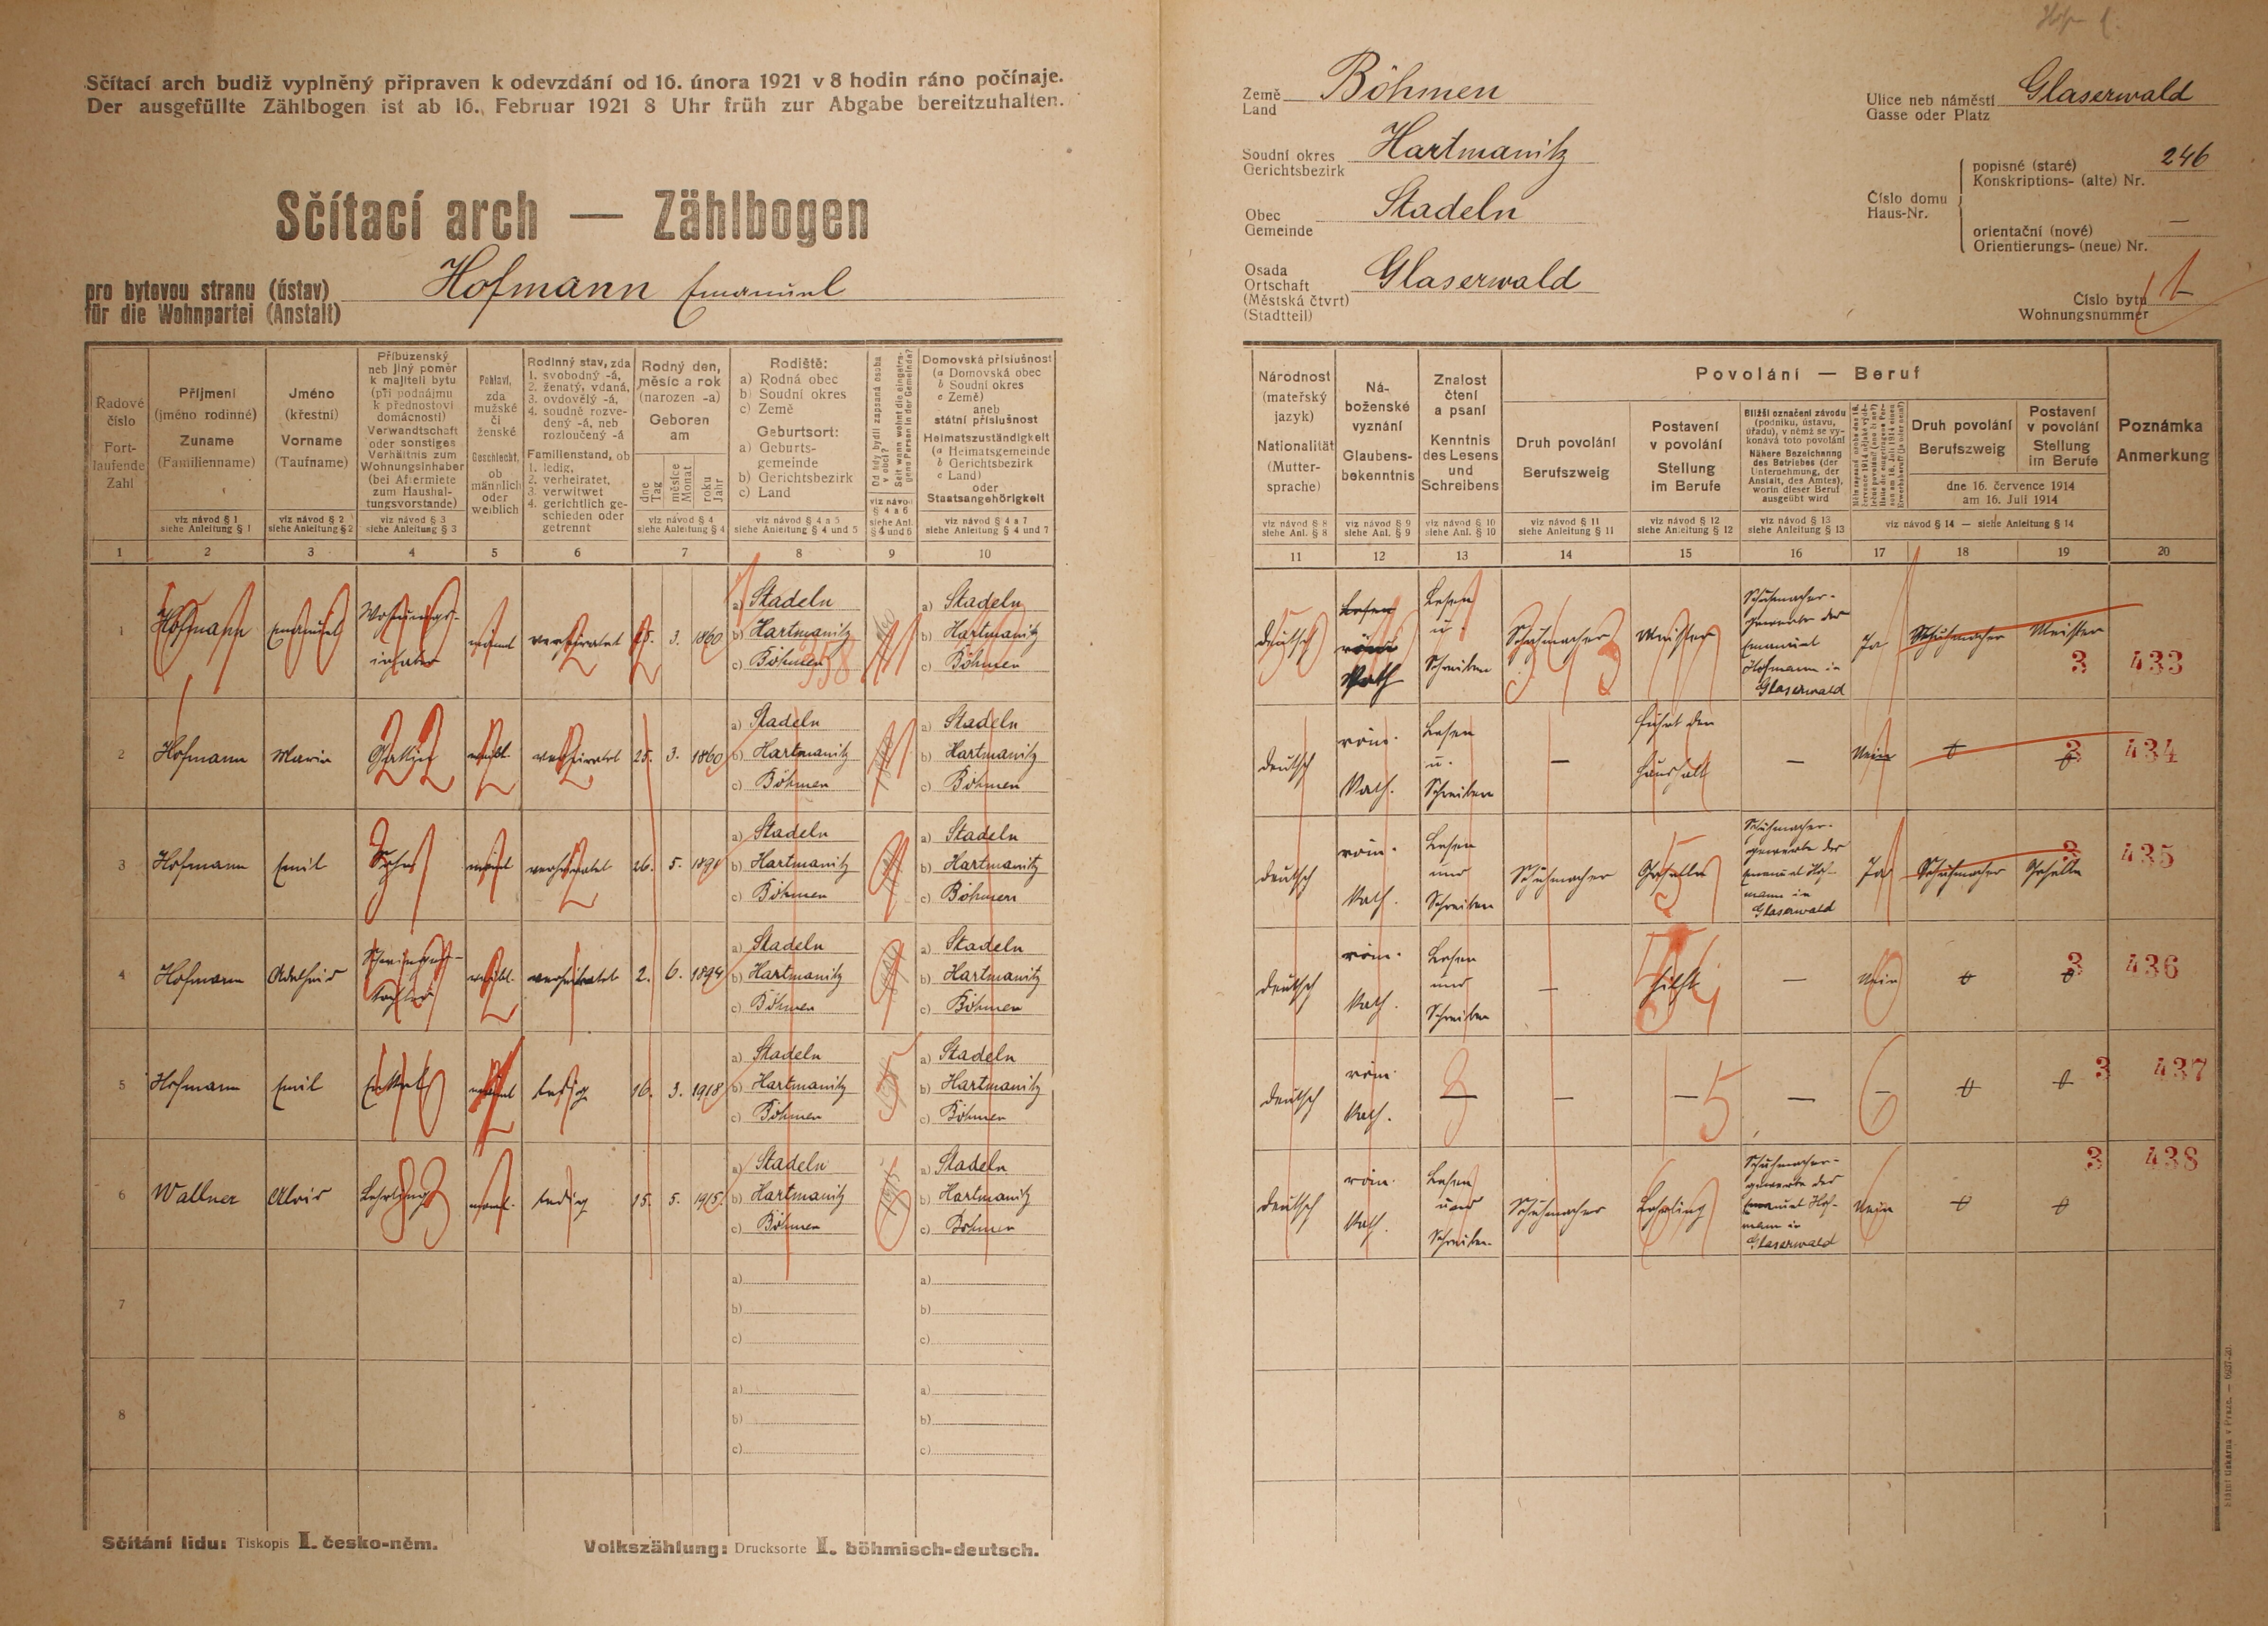 Hof
Sčítací arch budiž vyplněný připraven k odevzdání od 16. února 1921 v 8 hodin ráno počínaje.
Der ausgefüllte Zählbogen ist ab 16. Februar 1921 8 Uhr früh zur Abgabe bereitzuhalten.
Sčítací arch — Zählbogen
pro bytovou stranu (ústav)
für die Wohnpartei (Anstalt)
Hofmann Emanuel
Země
Land
Böhmen
Soudní okres
Gerichtsbezirk
Hartmanitz
Obec
Gemeinde
Stadeln
Osada
Ortschaft
(Městská čtvrt)
(Stadtteil)
Glaserwald
Ulice neb náměstí
Gasse oder Platz
Glaserwald
Číslo domu
Haus-Nr.
popisné (staré)
Konskriptions- (alte) Nr.
246
orientační (nové)
Orientierungs- (neue) Nr.
—
Číslo bytu
Wohnungsnummer
1
Řadové
číslo
Fort-
laufende
Zahl
Příjmení
(jméno rodinné)
Zuname
(Familienname)
viz návod § 1
siehe Anleitung § 1
Jméno
(křestní)
Vorname
(Taufname)
viz návod § 2
siehe Anleitung § 2
Příbuzenský
neb jiný poměr
k majiteli bytu
(při podnájmu
k přednostovi
domácnosti)
Verwandtschaft
oder sonstiges
Verhältnis zum
Wohnungsinhaber
(bei Aftermiete
zum Haushal-
tungsvorstande)
viz návod § 3
siehe Anleitung § 3
Pohlaví,
zda
mužské
či
ženské
Geschlecht,
ob
männlich
oder
weiblich
Rodinný stav, zda
1. svobodný -á,
2. ženatý, vdaná,
3. ovdovělý -á,
4. soudně rozve-
dený -á, neb
rozloučený -á
Familienstand, ob
1. ledig,
2. verheiratet,
3. verwitwet
4. gerichtlich ge-
schieden oder
getrennt
Rodný den,
měsíc a rok
(narozen -a)
Geboren
am
dne
Tag
měsíce
Monat
roku
Jahr
viz návod § 4
siehe Anleitung § 4
Rodiště:
a) Rodná obec
b) Soudní okres
c) Země
Geburtsort:
a) Geburts-
gemeinde
b) Gerichtsbezirk
c) Land
viz návod § 4 a 5
siehe Anleitung § 4 und 5
Od kdy bydlí zapsaná osoba
v obci?
Seit wann wohnt die eingetra-
gene Person in der Gemeinde?
viz návod
§ 4 a 6
siehe Anl.
§ 4 und 6
Domovská příslušnost
(a Domovská obec
b Soudní okres
c Země)
aneb
státní příslušnost
Heimatszuständigkeit
(a Heimatsgemeinde
b Gerichtsbezirk
c Land)
oder
Staatsangehörigkeit
viz návod § 4 a 7
siehe Anleitung § 4 und 7
Národnost
(mateřský
jazyk)
Nationalität
(Mutter-
sprache)
viz návod § 8
siehe Anl. § 8
Ná-
boženské
vyznání
Glaubens-
bekenntnis
viz návod § 9
siehe Anl. § 9
Znalost
čtení
a psaní
Kenntnis
des Lesens
und
Schreibens
viz návod § 10
siehe Anl. § 10
Povolání — Beruf
Druh povolání
Berufszweig
viz návod § 11
siehe Anleitung § 11
Postavení
v povolání
Stellung
im Berufe
viz návod § 12
siehe Anleitung § 12
Bližší označení závodu
(podniku, ústavu,
úřadu), v němž se vy-
konává toto povolání
Nähere Bezeichnung
des Betriebes (der
Unternehmung, der
Anstalt, des Amtes),
worin dieser Beruf
ausgeübt wird
viz návod § 13
siehe Anleitung § 13
Druh povolání
Berufszweig
Postavení
v povolání
Stellung
im Berufe
dne 16. července 1914
am 16. Juli 1914
viz návod § 14 — siehe Anleitung § 14
Poznámka
Anmerkung
1 2 3 4 5 6 7 8 9 10 11 12 13 14 15 16 17 18 19 20
1 Hofmann Emanuel Wohnungs-
inhaber
männl verheiratet 25. 3. 1860
a) Stadeln
b) Hartmanitz
c) Böhmen
358
1860
a) Stadeln
b) Hartmanitz
c) Böhmen
deutsch
Lesen
röm.
Kath
Lesen
u.
Schreiben
Schuhmacher Meister
Schuhmacher-
gewerbe des
Emanuel
Hofmann in
Glaserwald
Ja Schuhmacher Meister
3 433
2 Hofmann Maria Gattin weibl. verheiratet 25. 3. 1860
a) Stadeln
b) Hartmanitz
c) Böhmen
1860
a) Stadeln
b) Hartmanitz
c) Böhmen
deutsch
röm.
Kath.
Lesen
u.
Schreiben
—
führt den
Haushalt
—
Nein
3 434
3 Hofmann Emil Sohn männl verheiratet 26. 5. 1891
a) Stadeln
b) Hartmanitz
c) Böhmen
a) Stadeln
b) Hartmanitz
c) Böhmen
deutsch
röm.
Kath.
Lesen
und
Schreiben
Schuhmacher Geselle
Schuhmacher-
gewerbe des
Emanuel Hof-
mann in
Glaserwald
Ja Schuhmacher Geselle
3 435
4 Hofmann Adelheid Schwieger-
tochter
weibl. verheiratet 2. 6. 1894
a) Stadeln
b) Hartmanitz
c) Böhmen
a) Stadeln
b) Hartmanitz
c) Böhmen
deutsch
röm.
Kath.
Lesen
und
Schreiben
—
hilft
—
Nein
3 436
5 Hofmann Emil Enkel männl ledig 16. 3. 1918
a) Stadeln
b) Hartmanitz
c) Böhmen
a) Stadeln
b) Hartmanitz
c) Böhmen
deutsch
röm.
Kath.
— — — — —
3 437
6 Wallner Alois Lehrling männl. ledig 15. 5. 1915.
a) Stadeln
b) Hartmanitz
c) Böhmen
1915
a) Stadeln
b) Hartmanitz
c) Böhmen
deutsch
röm.
Kath.
Lesen
und
Schreiben.
Schuhmacher Lehrling
Schuhmacher-
gewerbe des
Emanuel Hof-
mann in
Glaserwald
Nein
3 438
7
a)
b)
c)
a)
b)
c)
8
a)
b)
c)
a)
b)
c)
Sčítání lidu: Tiskopis I. česko-něm.
Volkszählung: Drucksorte I. böhmisch-deutsch.